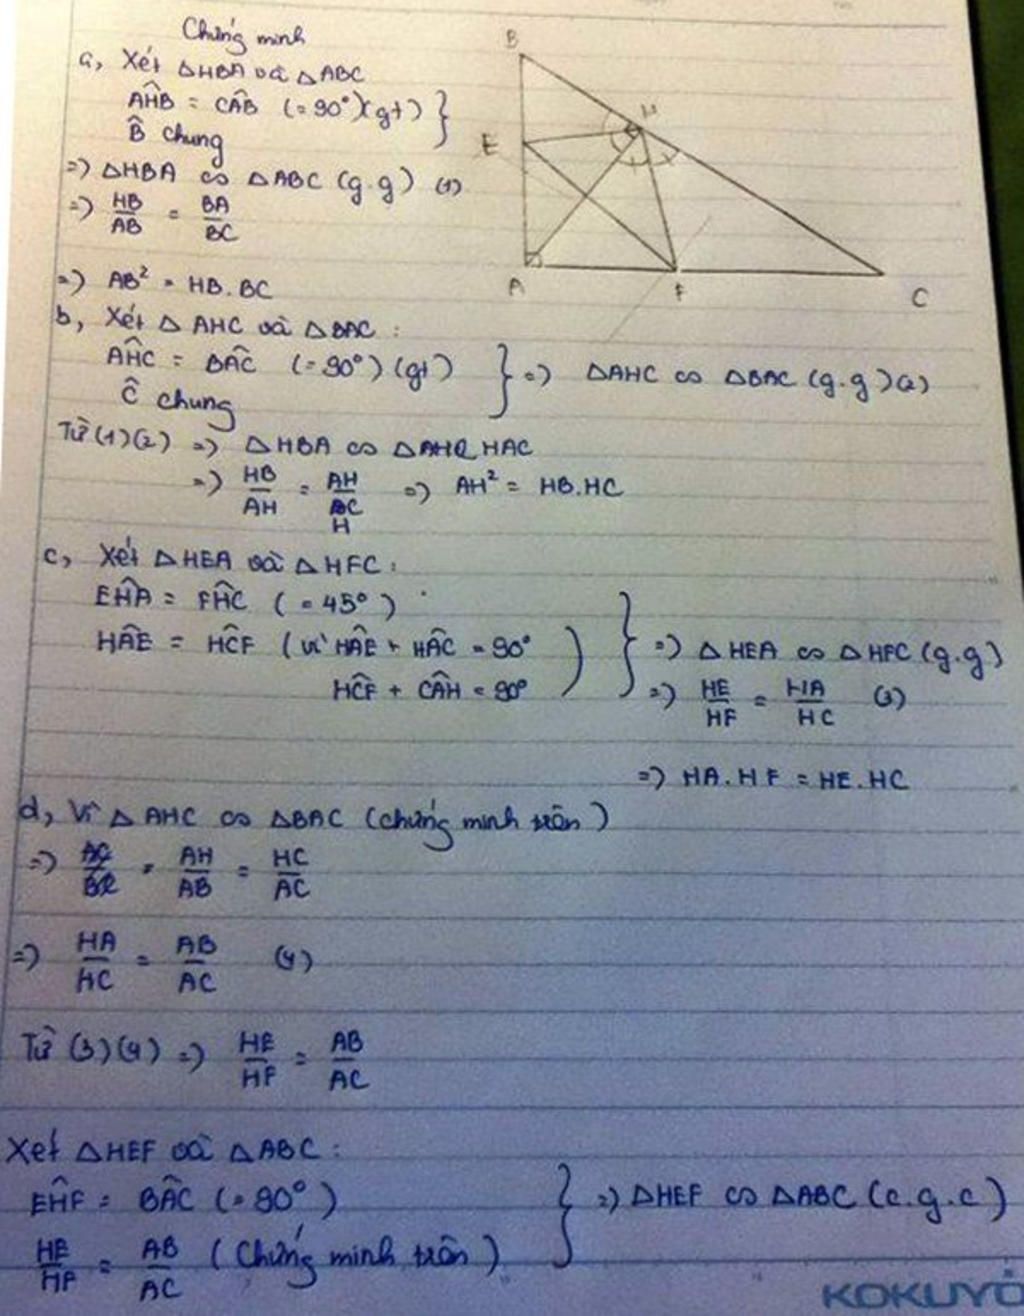 Chứng minh
a, Xét △HBA và △ABC
AĤB = CÂB (=90°)(gt) }
B̂ chung
=) △HBA ∽ △ABC (g.g) (1)
=) HB/AB = BA/BC
=) AB² = HB.BC
B
H
E
A
F
C
b, Xét △AHC và △BAC :
AĤC = BÂC (=90°)(gt) } =) △AHC ∽ △BAC (g.g)(2)
Ĉ chung
Từ (1)(2) =) △HBA ∽ HAC
=) HB/AH = AH/HC =) AH² = HB.HC
c, Xét △HEA và △HFC :
EĤA = FĤC (=45°)
HÂE = HĈF (vì HÂE + HÂC = 90° ) } =) △HEA ∽ △HFC (g.g)
HĈF + CÂH = 90°
=) HE/HF = HA/HC (3)
=) HA.HF = HE.HC
d, Vì △AHC ∽ △BAC (chứng minh trên)
=) AH/AB = HC/AC
=) HA/HC = AB/AC (4)
Từ (3)(4) =) HE/HF = AB/AC
Xét △HEF và △ABC :
EĤF = BÂC (=90°) } =) △HEF ∽ △ABC (c.g.c)
HE/HF = AB/AC (Chứng minh trên)
KOKUYO